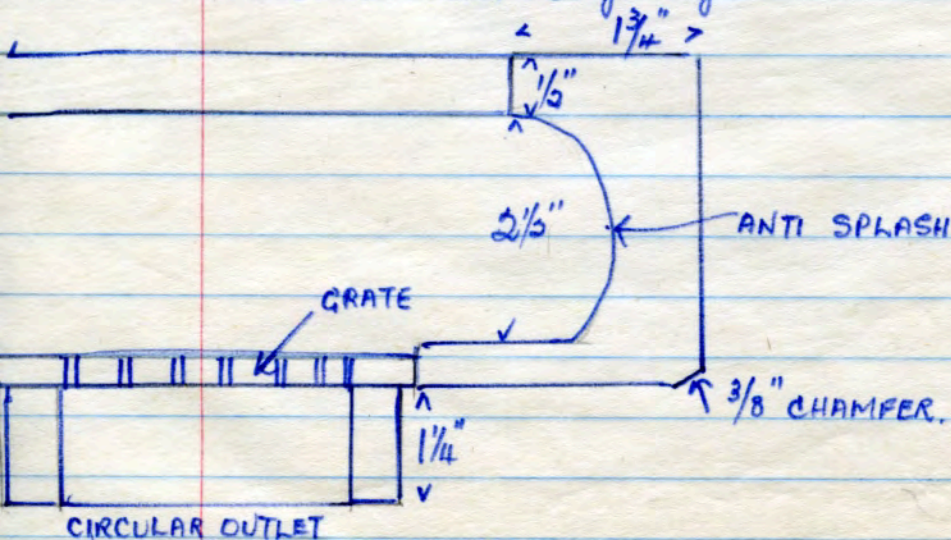 1 3/4"
1/2"
2 1/2"
ANTI SPLASH
GRATE
3/8" CHAMFER.
1 1/4"
CIRCULAR OUTLET